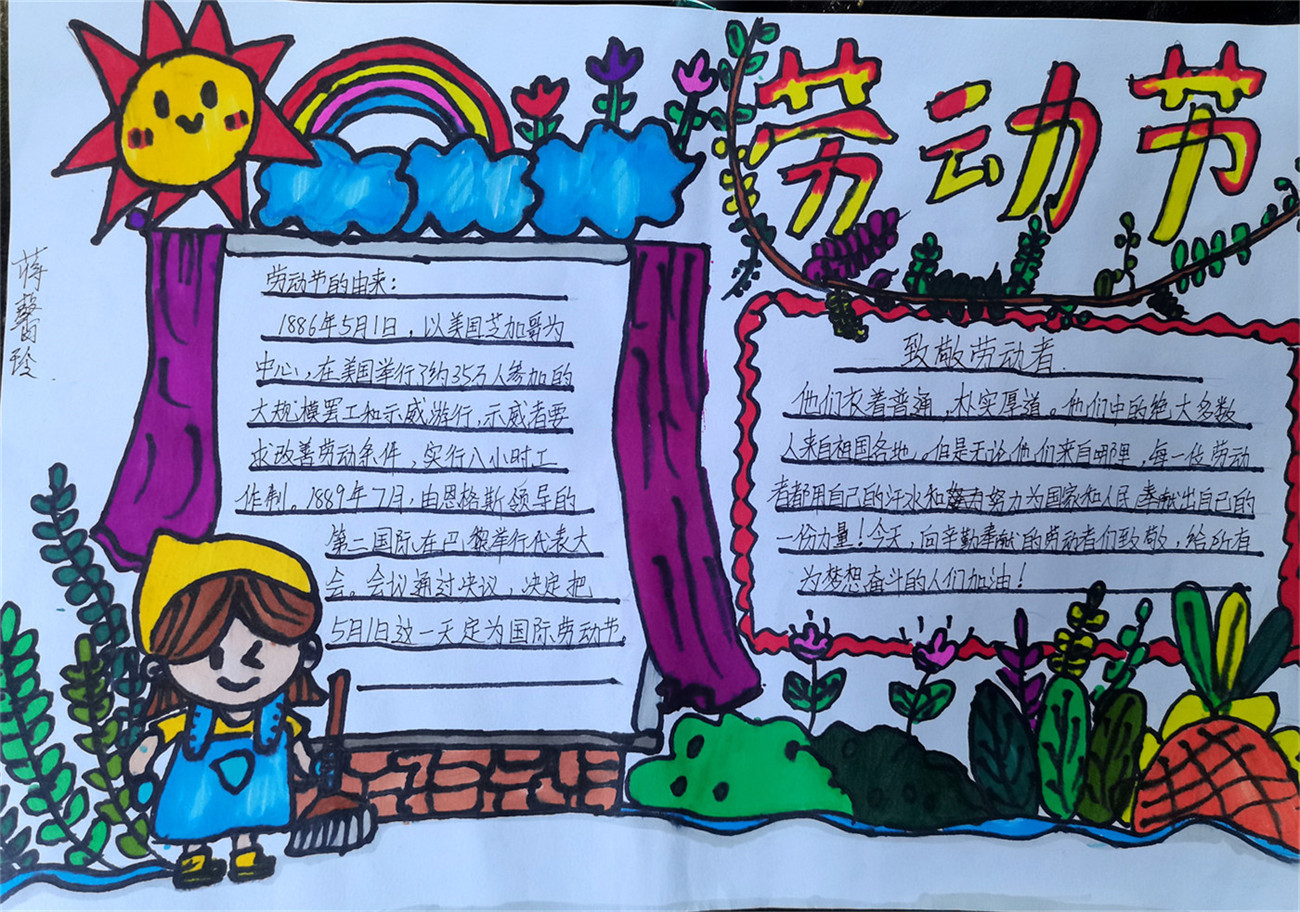 劳动节
蒋馨玲
劳动节的由来：
1886年5月1日，以美国芝加哥为
中心，在美国举行了约35万人参加的
大规模罢工和示威游行，示威者要
求改善劳动条件，实行八小时工
作制。1889年7月，由恩格斯领导的
第二国际在巴黎举行代表大
会。会议通过决议，决定把
5月1日这一天定为国际劳动节。
致敬劳动者
他们衣着普通，朴实厚道。他们中的绝大多数
人来自祖国各地，但是无论他们来自哪里，每一位劳动
者都用自己的汗水和努力为国家和人民奉献出自己的
一份力量！今天，向辛勤奉献的劳动者们致敬，给所有
为梦想奋斗的人们加油！